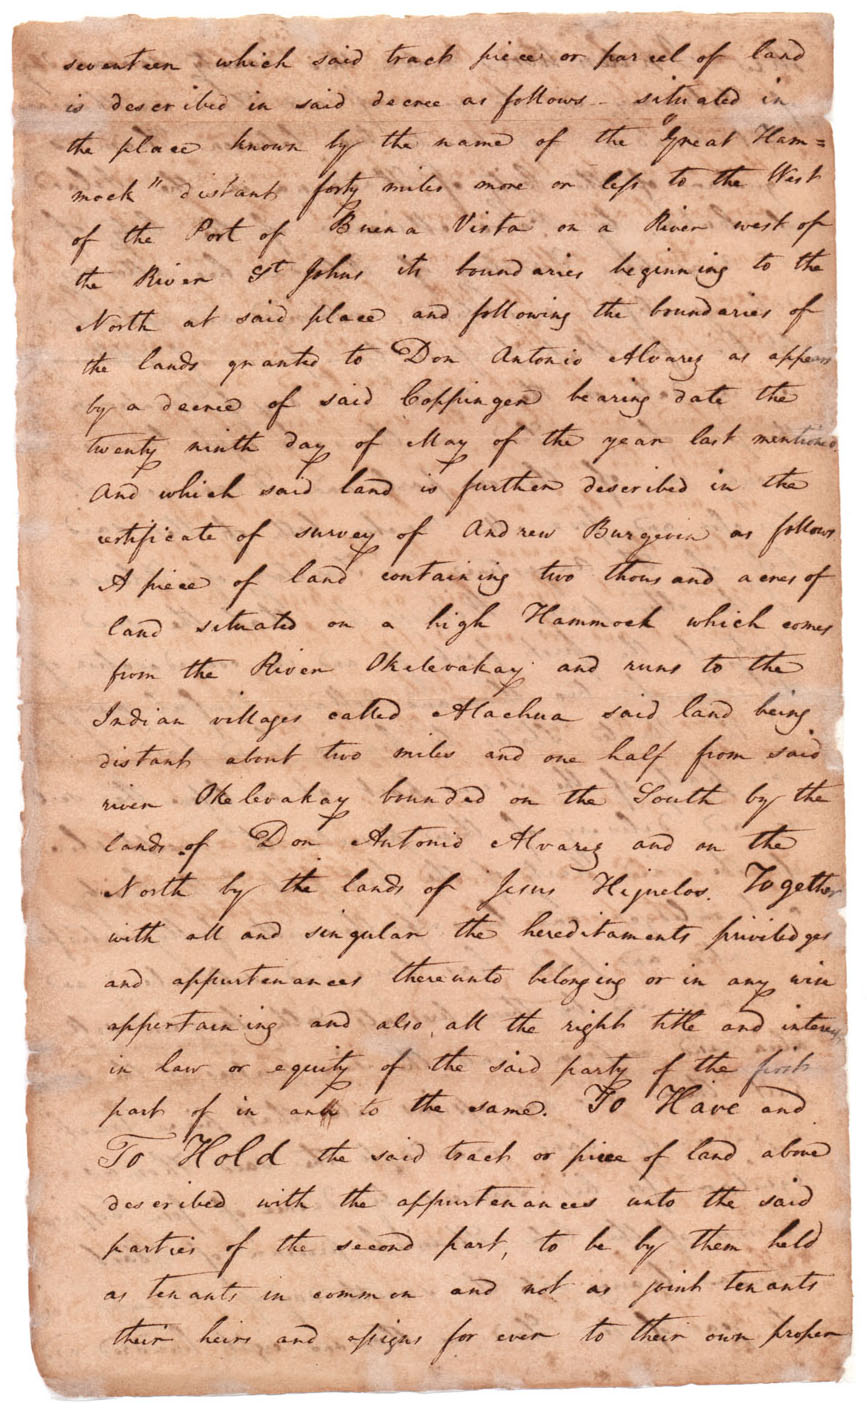 seventeen which said tract piece or parcel of land
is described in said decree as follows - situated in
the place known by the name of the "Great Ham=
mock" distant forty miles more or less to the West
of the Port of Buena Vista on a River west of
the River St Johns its boundaries beginning to the
North at said place and following the boundaries of
the lands granted to Don Antonio Alvarez as appears
by a decree of said Coppinger bearing date the
twenty ninth day of May of the year last mentioned.
And which said land is further described in the
certificate of survey of Andrew Burgevin as follows
A piece of land containing two thousand acres of
land situated on a high Hammock which comes
from the River Okelevakay and runs to the
Indian villages called Alachua said land being
distant about two miles and one half from said
river Okelevakay bounded on the South by the
lands of Don Antonio Alvarez and on the
North by the lands of Jesus Hijuelos. Together
with all and singular the hereditaments priviledges
and appurtenances thereunto belonging or in any wise
appertaining and also, all the right title and interest
in law or equity of the said party of the first
part of in and to the same. To Have and
To Hold the said tract or piece of land above
described with the appurtenances unto the said
parties of the second part, to be by them held
as tenants in common and not as joint tenants
their heirs and assigns for ever to their own proper